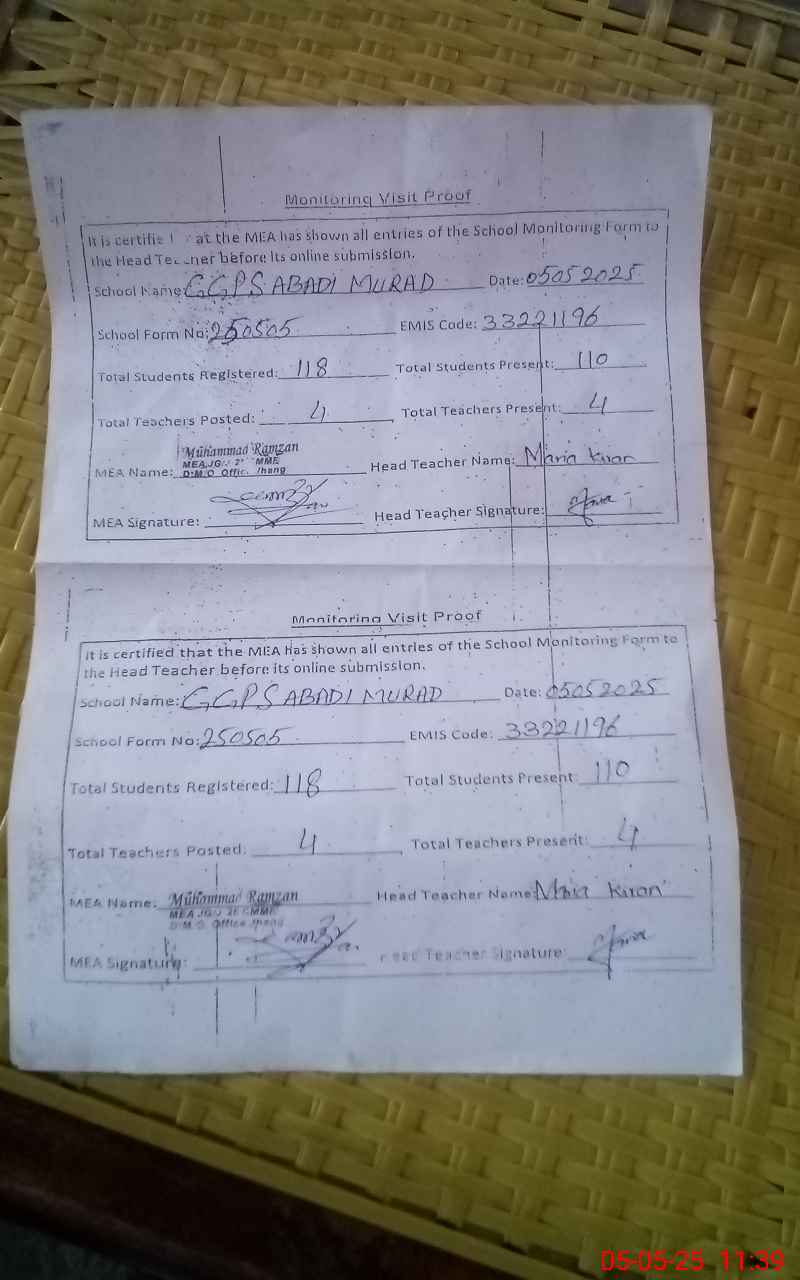 Monitoring Visit Proof
It is certifie at the MEA has shown all entries of the School Monitoring Form to
the Head Teacher before its online submission.
School Name: GGPS ABADI MURAD Date: 05052025
School Form No: 250505 EMIS Code: 33221196
Total Students Registered: 118 Total Students Present: 110
Total Teachers Posted: 4, Total Teachers Present: 4
Muhammad Ramzan
MEA Name: MEA, Head Teacher Name: Maria Kiran
D.M.O Office Jhang
MEA Signature: Head Teacher Signature:
Monitoring Visit Proof
It is certified that the MEA has shown all entries of the School Monitoring Form to
the Head Teacher before its online submission.
School Name: GGPS ABADI MURAD Date: 05052025
School Form No: 250505 EMIS Code: 33221196
Total Students Registered: 118 Total Students Present: 110
Total Teachers Posted: 4, Total Teachers Present: 4
MEA Name: Muhammad Ramzan Head Teacher Name: Maria Kiran
D.M.O Office Jhang
MEA Signature: Head Teacher Signature:
05-05-25 11:39